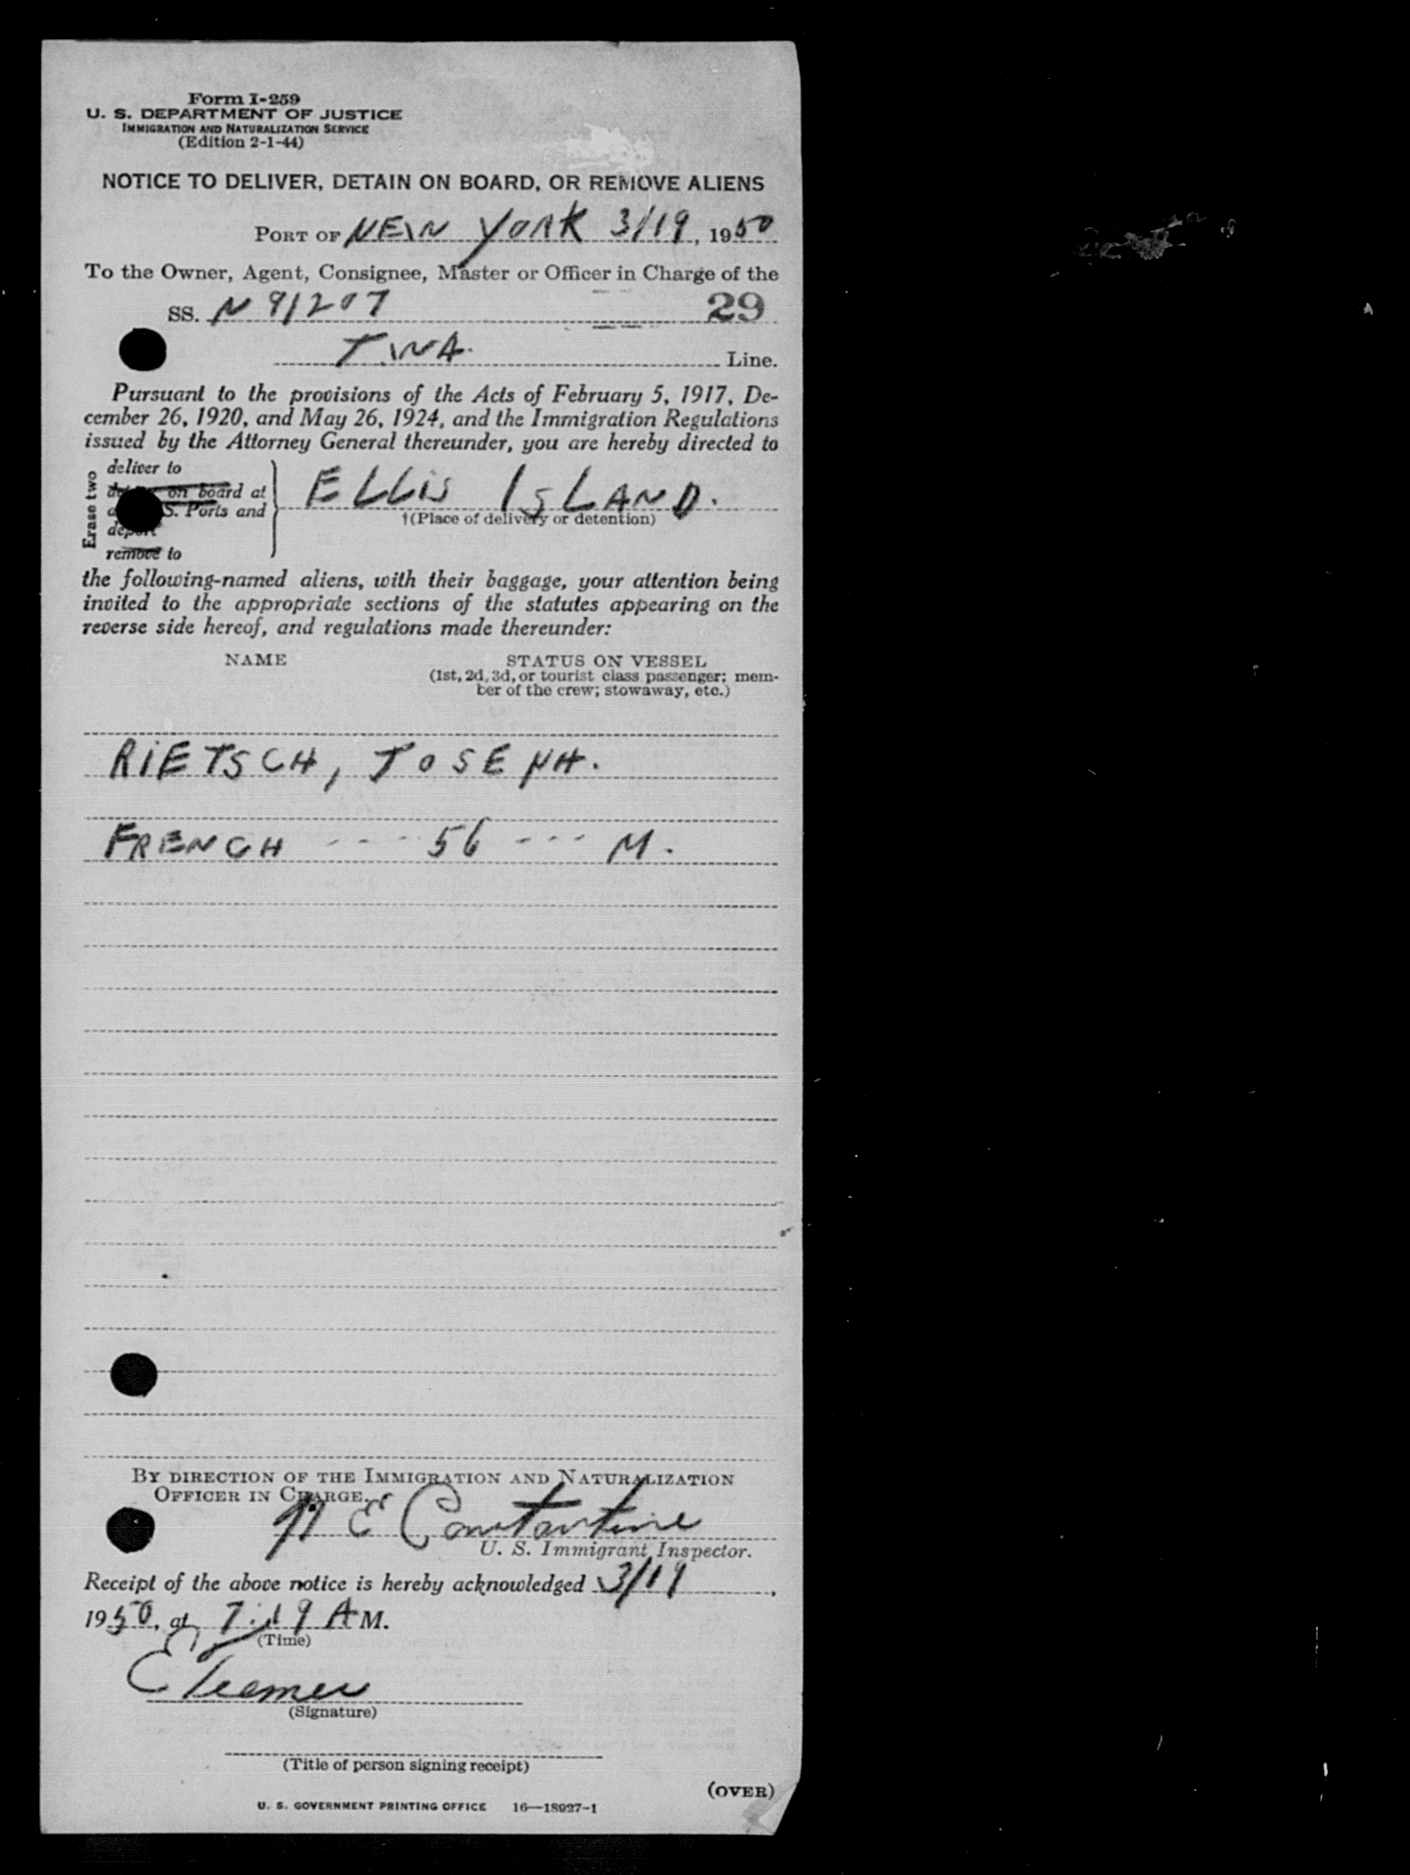 Form I-259
U. S. DEPARTMENT OF JUSTICE
IMMIGRATION AND NATURALIZATION SERVICE
(Edition 2-1-44)
NOTICE TO DELIVER, DETAIN ON BOARD, OR REMOVE ALIENS
PORT OF NEW YORK 3/19, 1950
To the Owner, Agent, Consignee, Master or Officer in Charge of the
SS. N 91207 29
TWA. Line.
Pursuant to the provisions of the Acts of February 5, 1917, De-
cember 26, 1920, and May 26, 1924, and the Immigration Regulations
issued by the Attorney General thereunder, you are hereby directed to
Erase two
deliver to
on board at
S. Ports and
deport
remove to
ELLIS ISLAND.
†(Place of delivery or detention)
the following-named aliens, with their baggage, your attention being
invited to the appropriate sections of the statutes appearing on the
reverse side hereof, and regulations made thereunder:
NAME STATUS ON VESSEL
(1st, 2d, 3d, or tourist class passenger; mem-
ber of the crew; stowaway, etc.)
RIETSCH, JOSEPH.
FRENCH --- 56 --- M.
BY DIRECTION OF THE IMMIGRATION AND NATURALIZATION
OFFICER IN CHARGE.
N E Constantine
U. S. Immigrant Inspector.
Receipt of the above notice is hereby acknowledged 3/19,
1950, at 7:19 A M.
(Time)
(Signature)
(Title of person signing receipt)
(OVER)
U. S. GOVERNMENT PRINTING OFFICE 16—18927-1